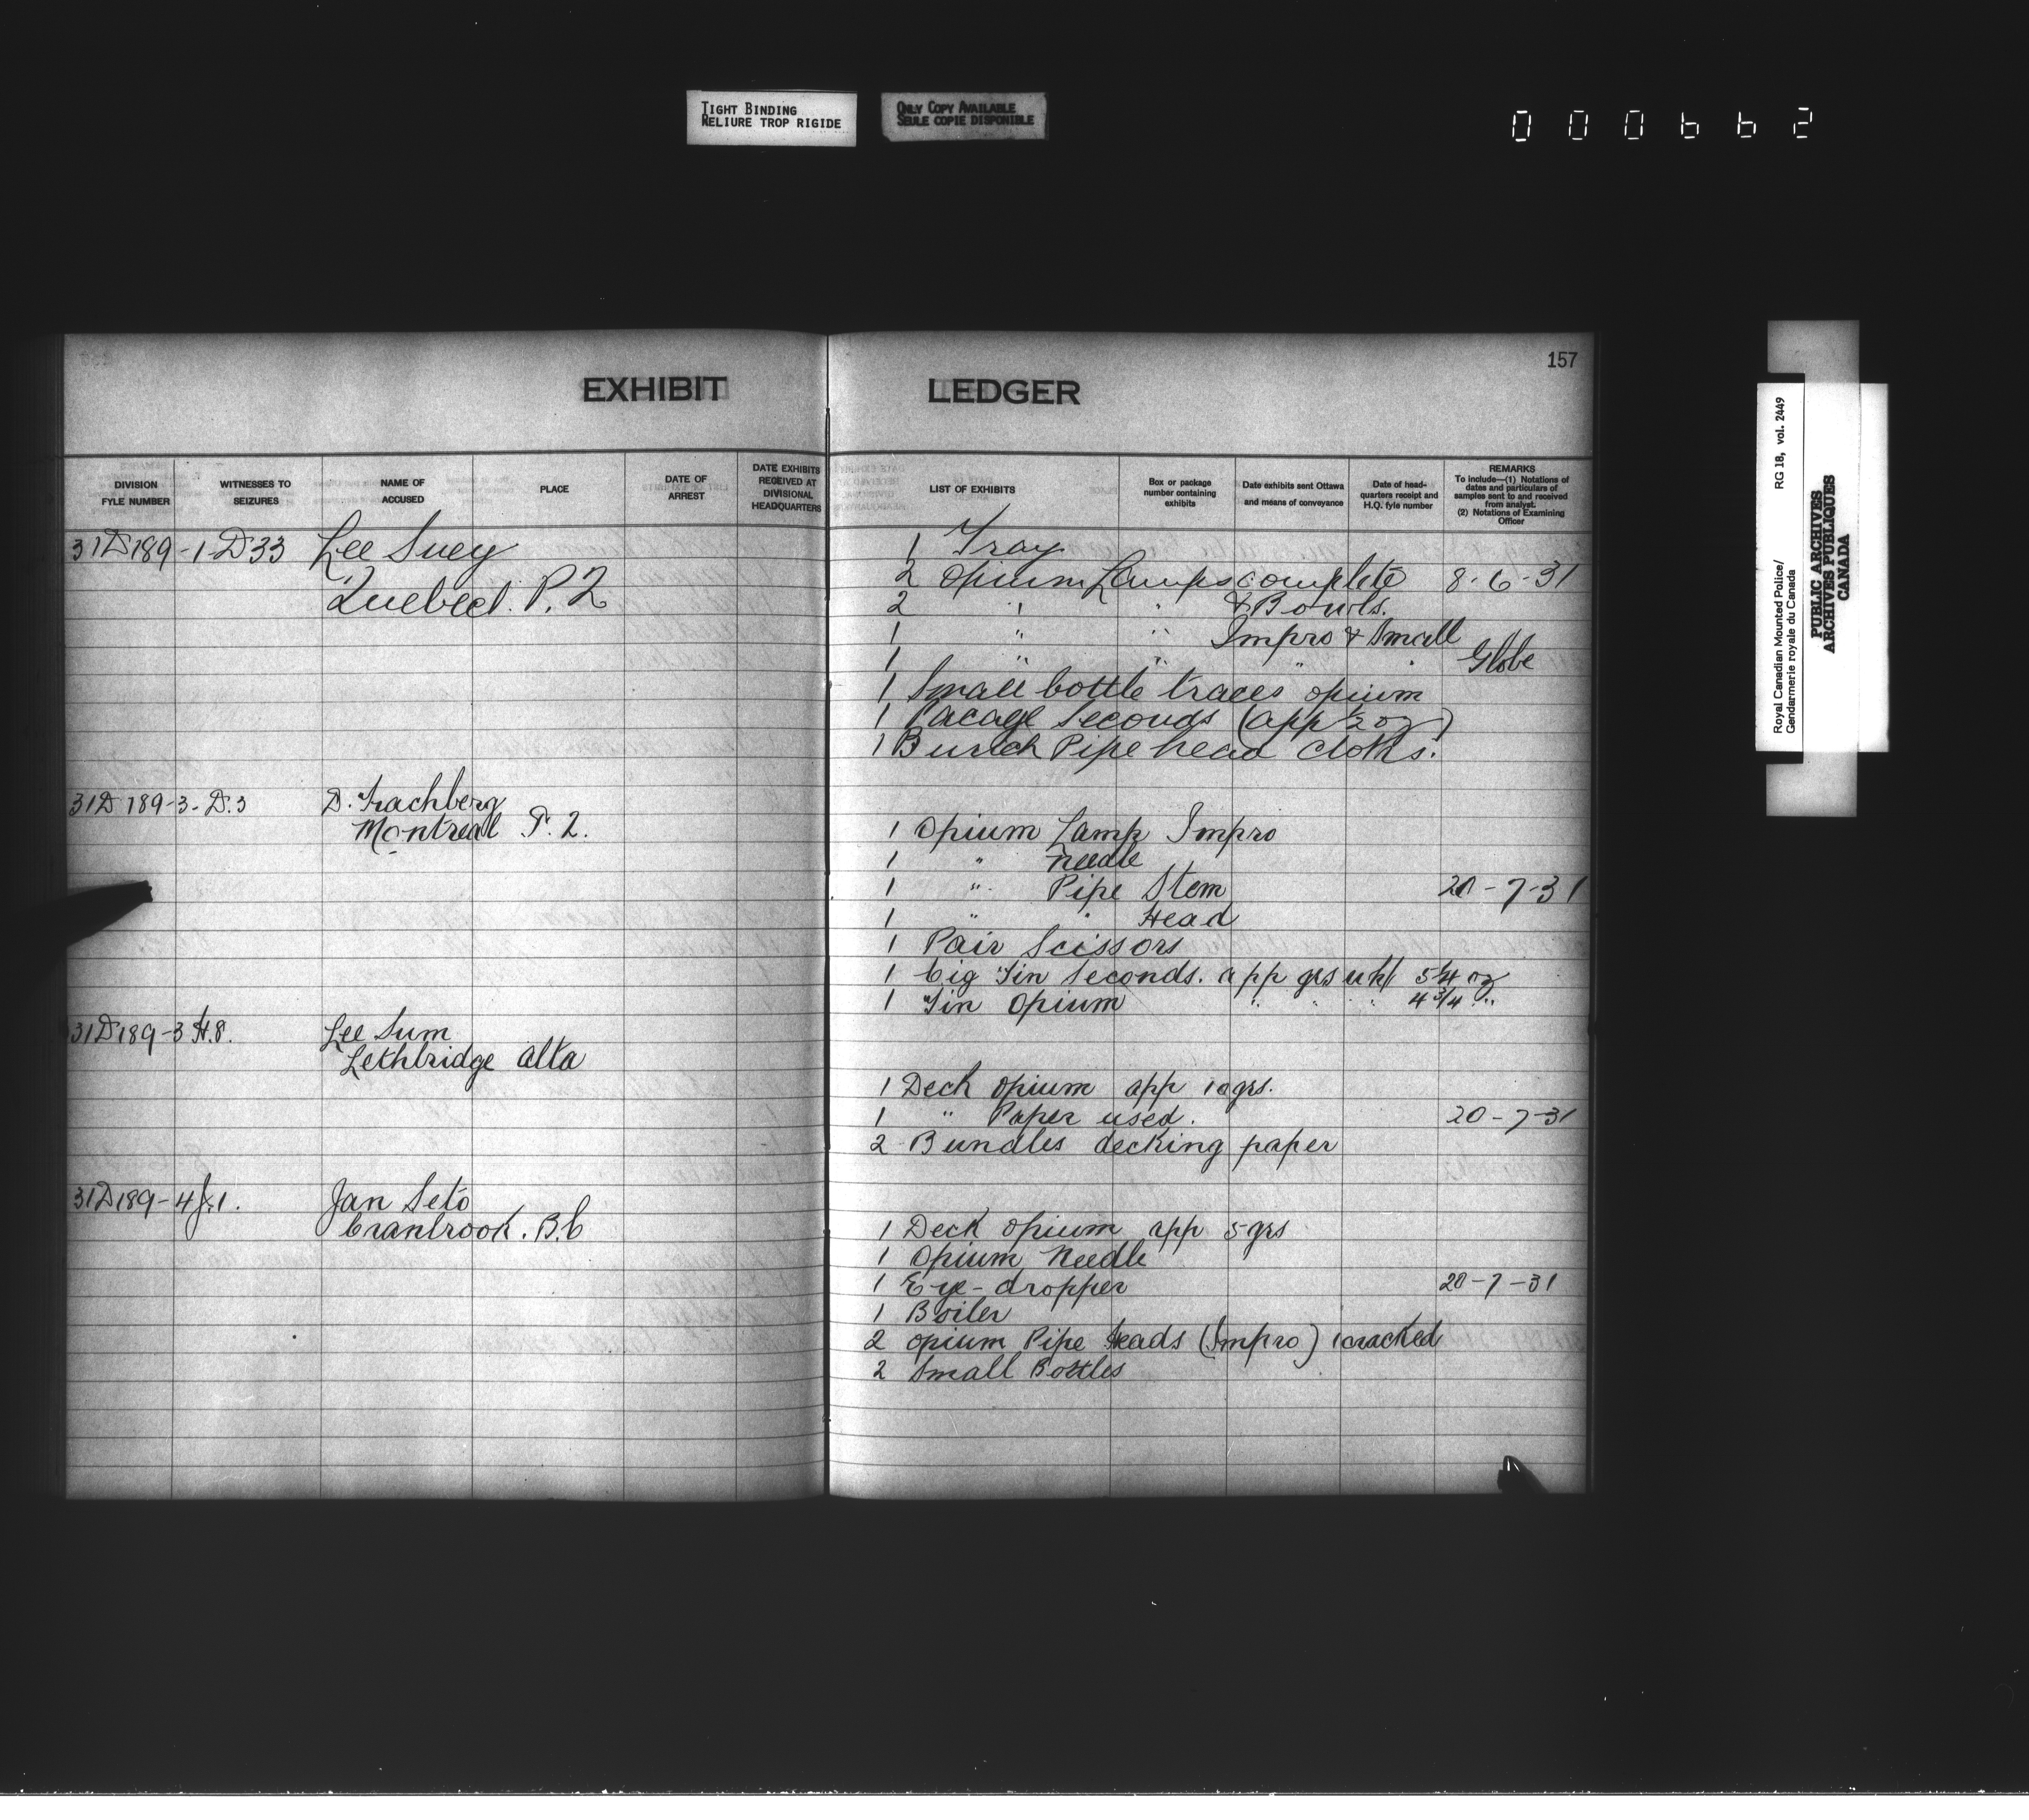 TIGHT BINDING
RELIURE TROP RIGIDE
ONLY COPY AVAILABLE
SEULE COPIE DISPONIBLE
000662
157
EXHIBIT LEDGER
DIVISION FYLE NUMBER
WITNESSES TO SEIZURES
NAME OF ACCUSED
PLACE
DATE OF ARREST
DATE EXHIBITS RECEIVED AT DIVISIONAL HEADQUARTERS
LIST OF EXHIBITS
Box or package number containing exhibits
Date exhibits sent Ottawa and means of conveyance
Date of head-quarters receipt and H.Q. fyle number
REMARKS
To include—(1) Notations of dates and particulars of samples sent to and received from analyst.
(2) Notations of Examining Officer
31D189-1-D33 Lee Suey
Quebec. P.Q
1 Tray
2 Opium Lamps complete 8-6-31
2 " " & Bowls.
1 " " Impro & Small
1 " " " " Globe
1 Small bottle traces opium
1 Pacage Seconds (app ½ oz)
1 Bunch Pipe head cloths.
31D189-3-D.3 D. Trachberg
Montreal P.Q.
1 Opium Lamp Impro
1 " needle
1 " Pipe Stem 20-7-31
1 " " Head
1 Pair Scissors
1 Cig Tin Seconds. app grs wht 5¼ oz
1 Tin Opium " " " 4¾ "
31D189-3 H.8. Lee Sum
Lethbridge Alta
1 Deck opium app 10 grs.
1 " Paper used. 20-7-31
2 Bundles decking paper
31D189-4 J.1. Jan Seto
Cranbrook. B.C
1 Deck opium app 5 grs
1 Opium Needle
1 Eye-dropper 20-7-31
1 Boiler
2 opium Pipe Heads (Impro) 1 cracked
2 Small Bottles
RG 18, vol. 2449
Royal Canadian Mounted Police/
Gendarmerie royale du Canada
PUBLIC ARCHIVES
ARCHIVES PUBLIQUES
CANADA